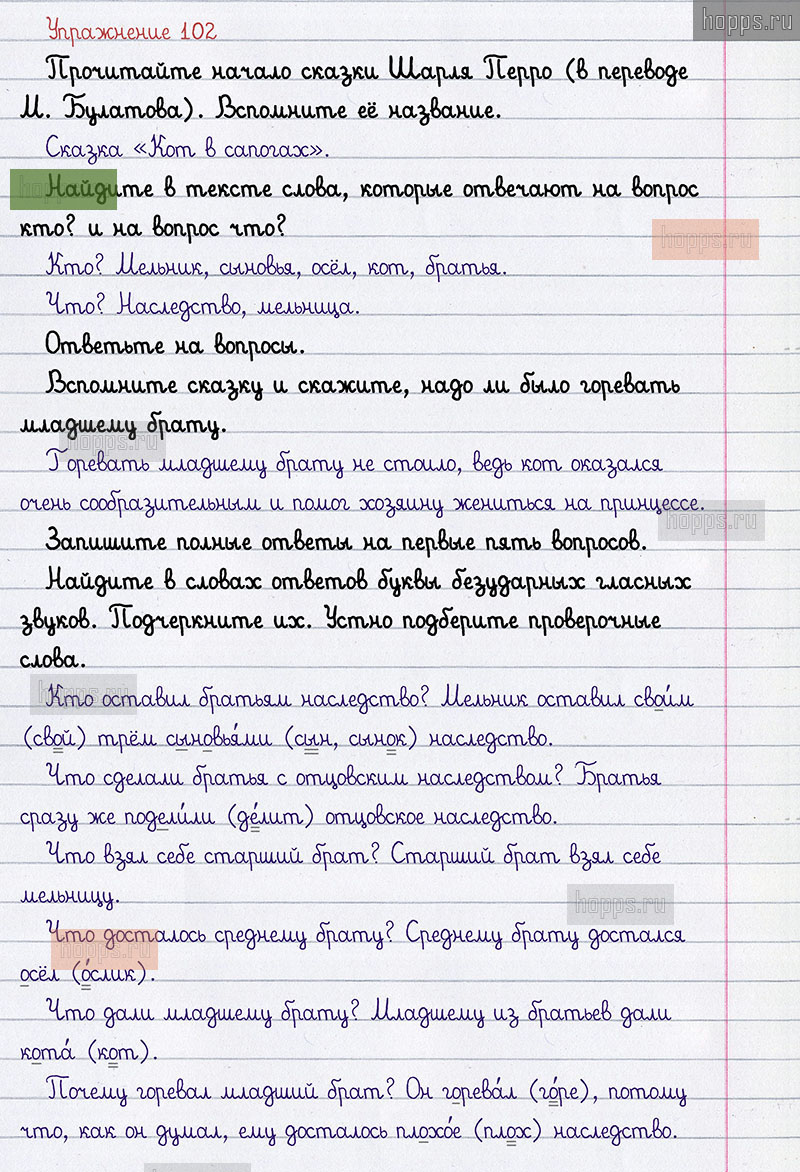 hopps.ru
Упражнение 102
Прочитайте начало сказки Шарля Перро (в переводе
М. Булатова). Вспомните её название.
Сказка «Кот в сапогах».
Найдите в тексте слова, которые отвечают на вопрос
кто? и на вопрос что?
hopps.ru
Кто? Мельник, сыновья, осёл, кот, братья.
Что? Наследство, мельница.
Ответьте на вопросы.
Вспомните сказку и скажите, надо ли было горевать
младшему брату.
hopps.ru
Горевать младшему брату не стоило, ведь кот оказался
очень сообразительным и помог хозяину жениться на принцессе.
hopps.ru
Запишите полные ответы на первые пять вопросов.
Найдите в словах ответов буквы безударных гласных
звуков. Подчеркните их. Устно подберите проверочные
слова.
hopps.ru
Кто оставил братьям наследство? Мельник оставил свои́м
(свой) трём сыновья́ми (сын, сынок) наследство.
Что сделали братья с отцовским наследством? Братья
сразу же подели́ли (де́лит) отцовское наследство.
Что взял себе старший брат? Старший брат взял себе
мельницу.
hopps.ru
Что досталось среднему брату? Среднему брату достался
hopps.ru
осёл (о́слик).
Что дали младшему брату? Младшему из братьев дали
кота́ (кот).
Почему горевал младший брат? Он горева́л (го́ре), потому
что, как он думал, ему досталось плохо́е (плох) наследство.